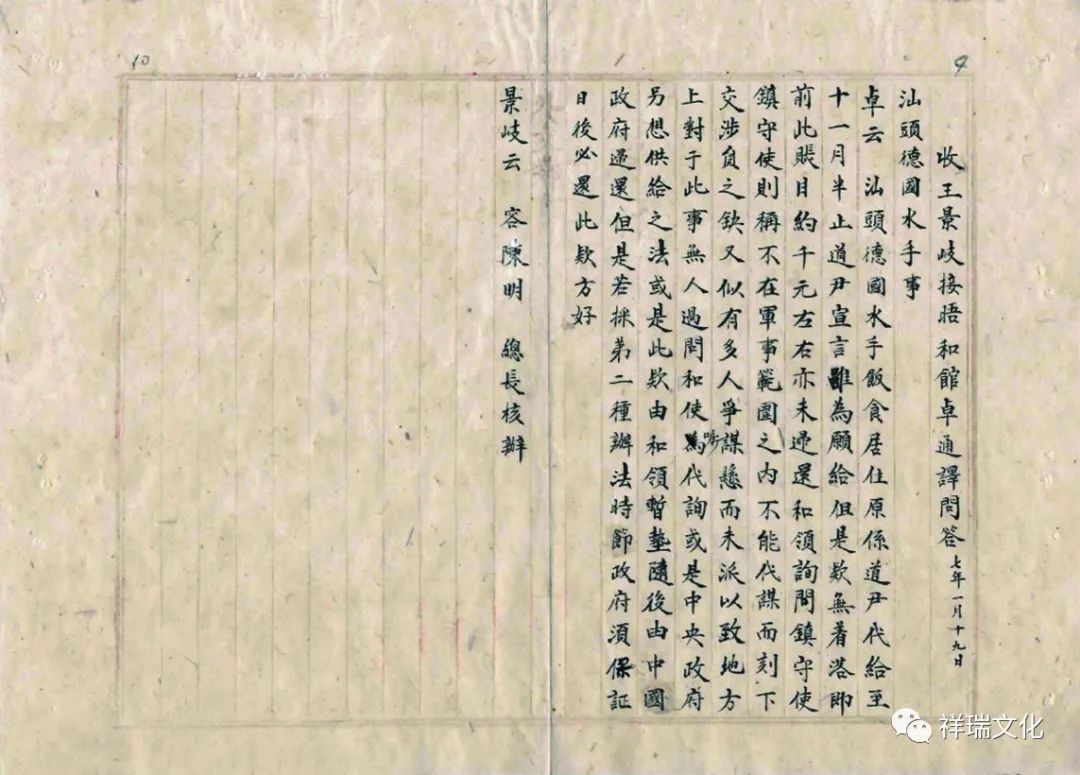 9
收王景岐接晤和館卓通譯問答 七年一月十九日
汕頭德國水手事
卓云 汕頭德國水手飯食居住原係道尹代給至
十一月半止道尹宣言雖為願給但是欵無着落即
前此賬目約千元左右亦未還還和領詢問鎮守使
鎮守使則稱不在軍事範圍之內不能代謀而刻下
交涉負之缺又似有多人爭謀懸而未派以致地方
上對于此事無人過問和使囑為代詢或是中央政府
另想供給之法或是此欵由和領暫墊隨後由中國
政府還還但是若採第二種辦法時節政府須保証
日後必還此欵方好
景岐云 容陳明 總長核辦
10
祥瑞文化